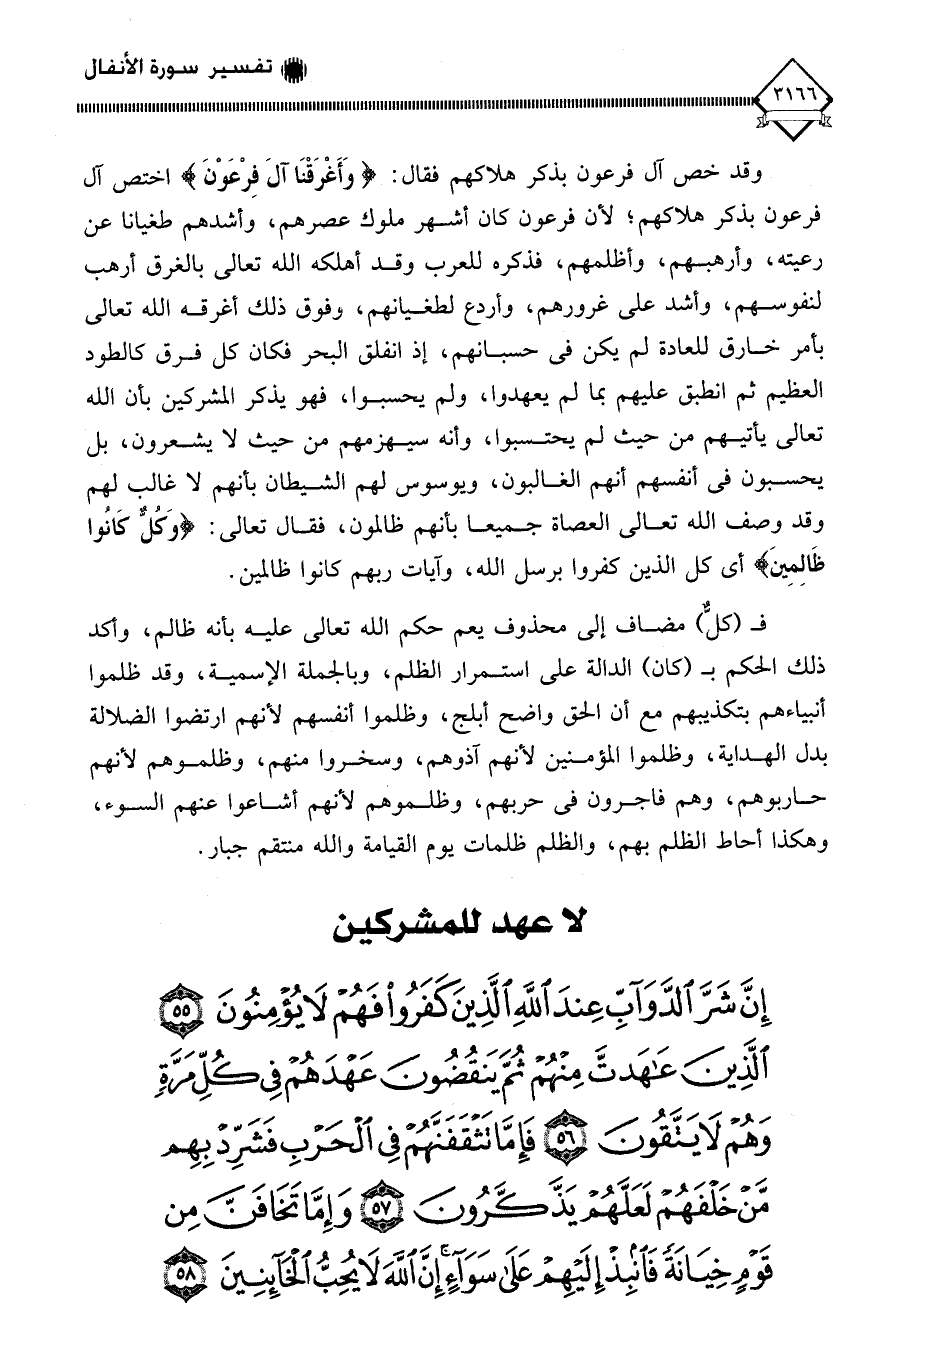 تفسير سورة الأنفال
٣١٦٦
وقد خص آل فرعون بذكر هلاكهم فقال: ﴿ وَأَغْرَقْنَا آلَ فِرْعَوْنَ ﴾ اختص آل
فرعون بذكر هلاكهم؛ لأن فرعون كان أشهر ملوك عصرهم، وأشدهم طغيانا عن
رعيته، وأرهبهم، وأظلمهم، فذكره للعرب وقد أهلكه الله تعالى بالغرق أرهب
لنفوسهم، وأشد على غرورهم، وأردع لطغيانهم، وفوق ذلك أغرقه الله تعالى
بأمر خارق للعادة لم يكن فى حسبانهم، إذ انفلق البحر فكان كل فرق كالطود
العظيم ثم انطبق عليهم بما لم يعهدوا، ولم يحسبوا، فهو يذكر المشركين بأن الله
تعالى يأتيهم من حيث لم يحتسبوا، وأنه سيهزمهم من حيث لا يشعرون، بل
يحسبون فى أنفسهم أنهم الغالبون، ويوسوس لهم الشيطان بأنهم لا غالب لهم
وقد وصف الله تعالى العصاة جميعا بأنهم ظالمون، فقال تعالى: ﴿وَكُلٌّ كَانُوا
ظَالِمِينَ﴾ أى كل الذين كفروا برسل الله، وآيات ربهم كانوا ظالمين.
فـ (كلٌّ) مضاف إلى محذوف يعم حكم الله تعالى عليه بأنه ظالم، وأكد
ذلك الحكم بـ (كان) الدالة على استمرار الظلم، وبالجملة الإسمية، وقد ظلموا
أنبياءهم بتكذيبهم مع أن الحق واضح أبلج، وظلموا أنفسهم لأنهم ارتضوا الضلالة
بدل الهداية، وظلموا المؤمنين لأنهم آذوهم، وسخروا منهم، وظلموهم لأنهم
حاربوهم، وهم فاجرون فى حربهم، وظلموهم لأنهم أشاعوا عنهم السوء،
وهكذا أحاط الظلم بهم، والظلم ظلمات يوم القيامة والله منتقم جبار.
لا عهد للمشركين
إِنَّ شَرَّ ٱلدَّوَآبِّ عِندَ ٱللَّهِ ٱلَّذِينَ كَفَرُواْ فَهُمْ لَا يُؤْمِنُونَ ٥٥
ٱلَّذِينَ عَٰهَدتَّ مِنْهُمْ ثُمَّ يَنقُضُونَ عَهْدَهُمْ فِى كُلِّ مَرَّةٍ
وَهُمْ لَا يَتَّقُونَ ٥٦ فَإِمَّا تَثْقَفَنَّهُمْ فِى ٱلْحَرْبِ فَشَرِّدْ بِهِم
مَّنْ خَلْفَهُمْ لَعَلَّهُمْ يَذَّكَّرُونَ ٥٧ وَإِمَّا تَخَافَنَّ مِن
قَوْمٍ خِيَانَةً فَٱنۢبِذْ إِلَيْهِمْ عَلَىٰ سَوَآءٍ ۚ إِنَّ ٱللَّهَ لَا يُحِبُّ ٱلْخَآئِنِينَ ٥٨